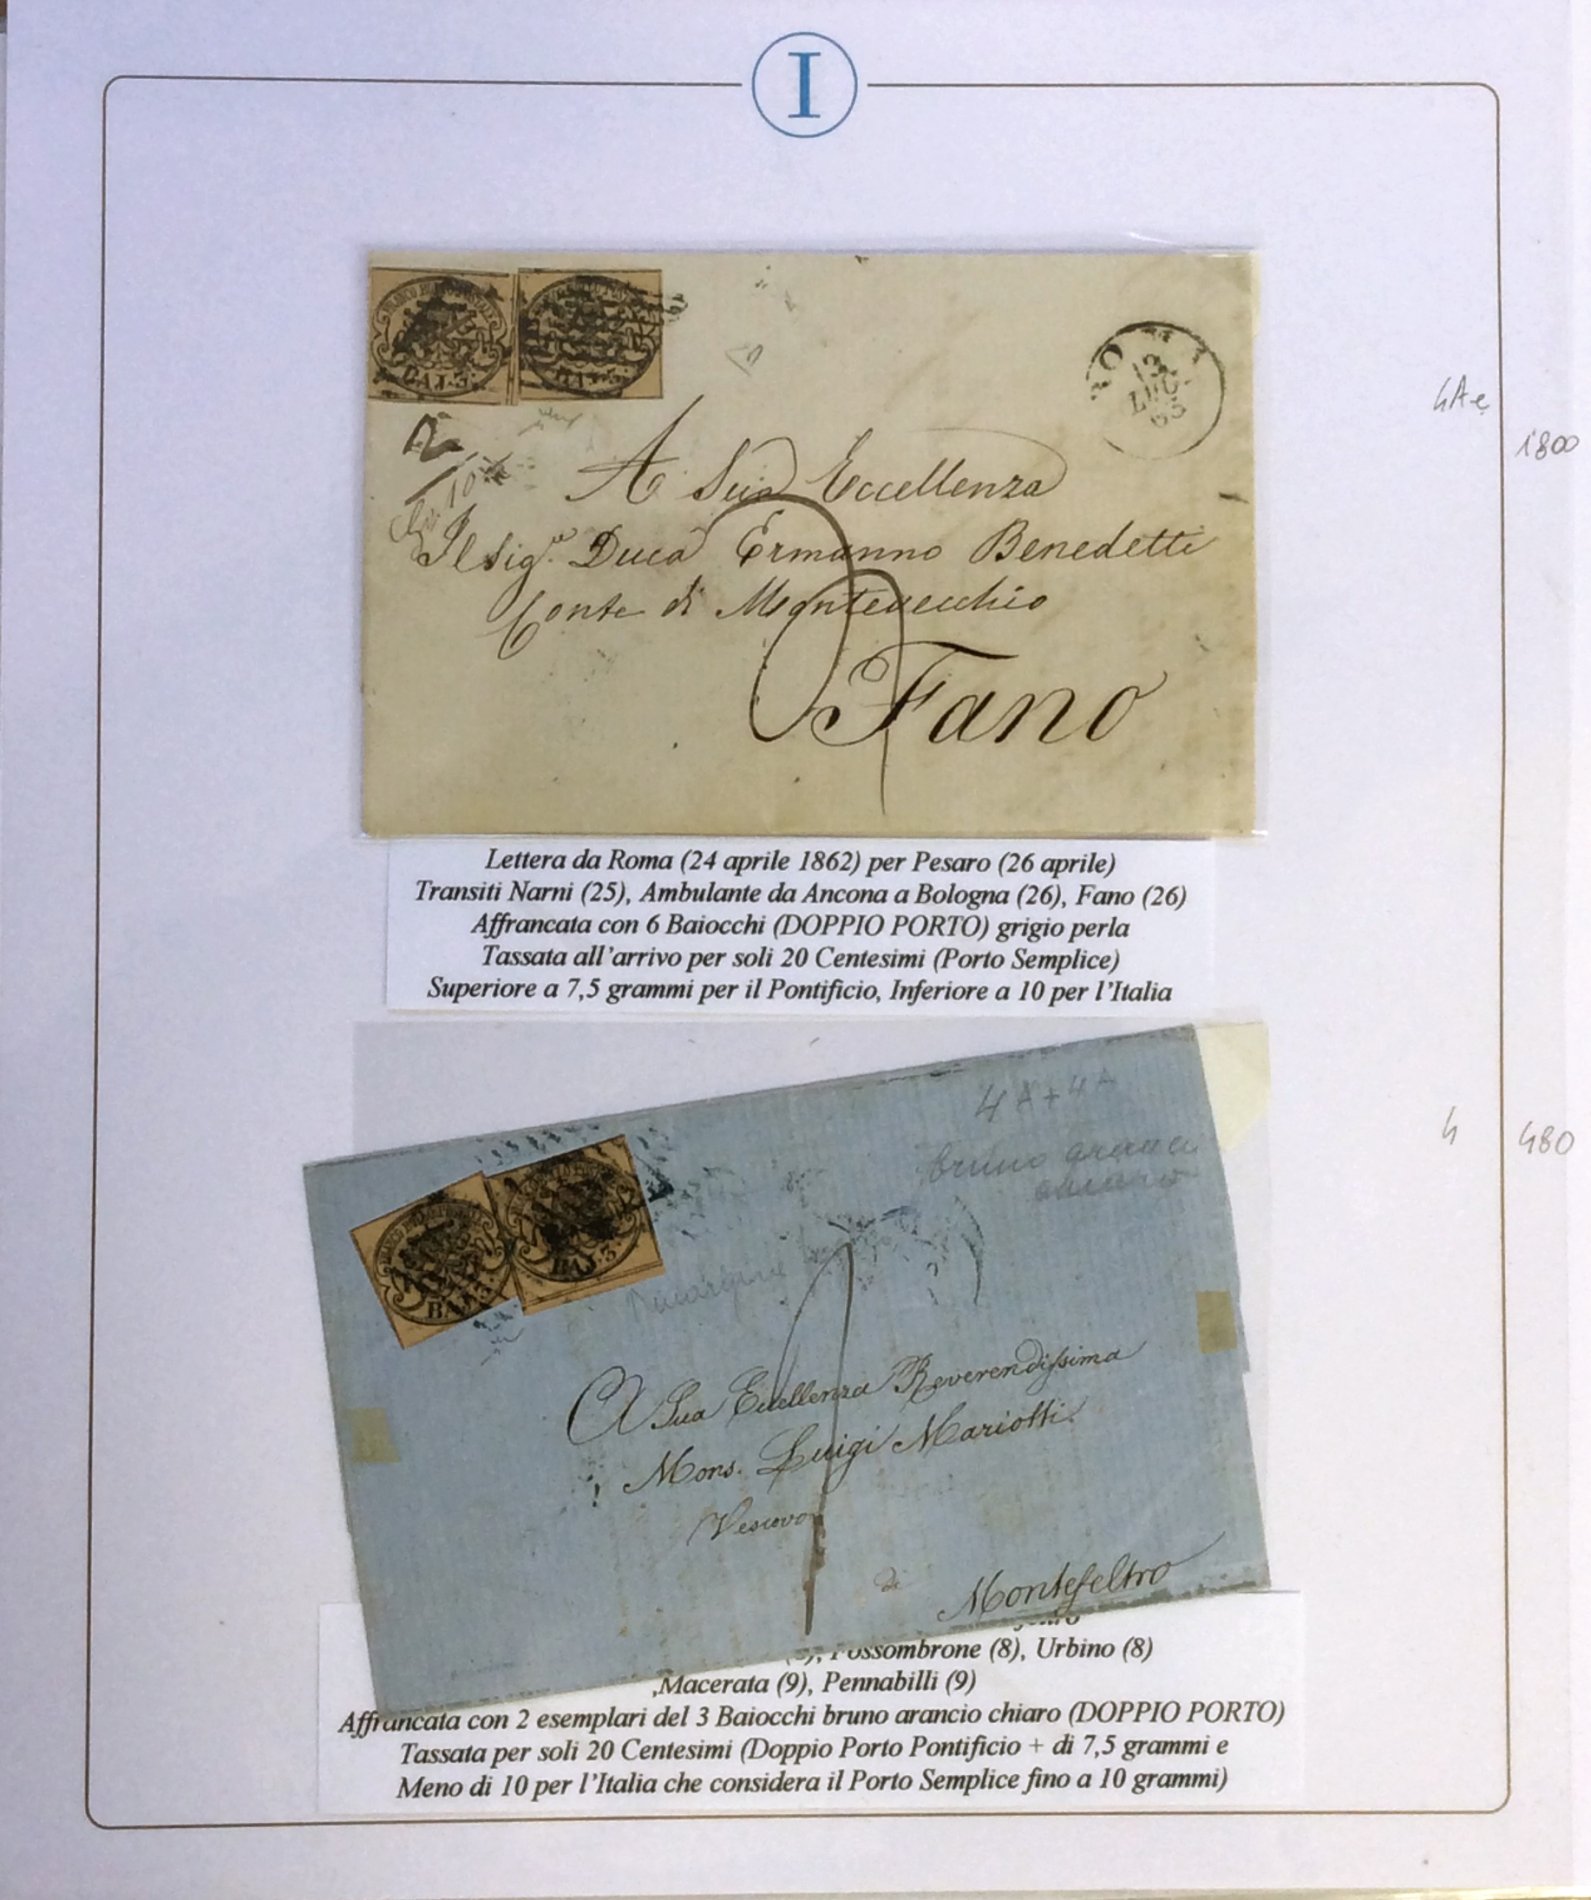 I
FRANCO BOLLO POSTALE
BAJ. 3.
BAJ. 3.
ROMA
LUG
63
4Ae
1800
A Sua Eccellenza
Il Sig.re Duca Ermanno Benedetti
Conte di Montevecchio
Fano
Lettera da Roma (24 aprile 1862) per Pesaro (26 aprile)
Transiti Narni (25), Ambulante da Ancona a Bologna (26), Fano (26)
Affrancata con 6 Baiocchi (DOPPIO PORTO) grigio perla
Tassata all'arrivo per soli 20 Centesimi (Porto Semplice)
Superiore a 7,5 grammi per il Pontificio, Inferiore a 10 per l'Italia
4A+4A
bruno
4
480
BAJ. 3.
BAJ. 3.
A Sua Eccellenza Reverendissima
Mons. Luigi Mariotti
Vescovo
di
Montefeltro
Fossombrone (8), Urbino (8)
Macerata (9), Pennabilli (9)
Affrancata con 2 esemplari del 3 Baiocchi bruno arancio chiaro (DOPPIO PORTO)
Tassata per soli 20 Centesimi (Doppio Porto Pontificio + di 7,5 grammi e
Meno di 10 per l'Italia che considera il Porto Semplice fino a 10 grammi)